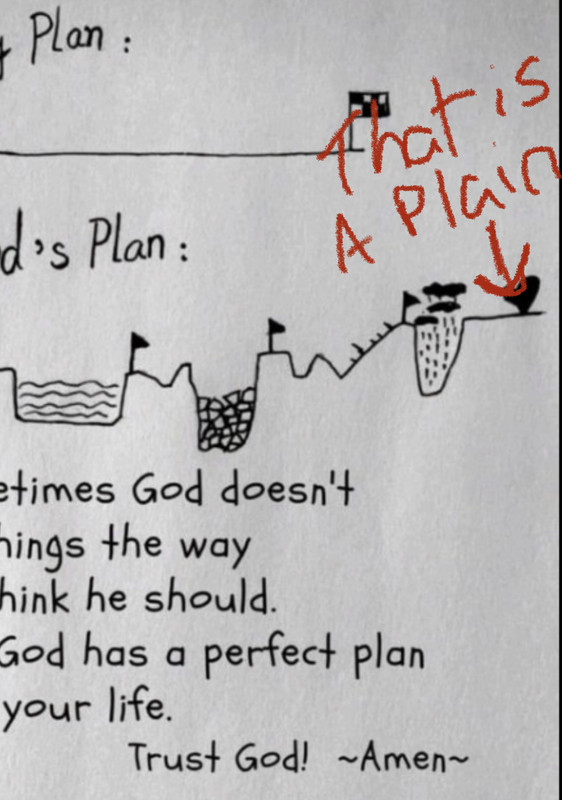 y Plan :
That is
A Plain
d's Plan :
etimes God doesn't
hings the way
hink he should.
God has a perfect plan
your life.
Trust God! ~Amen~